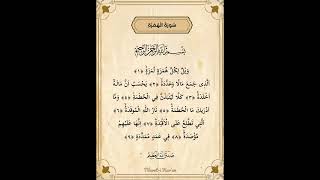 سُورَةُ الْهُمَزَةِ
بِسْمِ اللّٰهِ الرَّحْمٰنِ الرَّحِيمِ
وَيْلٌ لِكُلِّ هُمَزَةٍ لُمَزَةٍ ﴿١﴾
اَلَّذِى جَمَعَ مَالًا وَعَدَّدَهُ ﴿٢﴾ يَحْسَبُ اَنَّ مَالَهُ
اَخْلَدَهُ ﴿٣﴾ كَلَّا لَيُنْبَذَنَّ فِى الْحُطَمَةِ ﴿٤﴾ وَمَا
اَدْرٰيكَ مَا الْحُطَمَةُ ﴿٥﴾ نَارُ اللّٰهِ الْمُوقَدَةُ ﴿٦﴾
اَلَّتِى تَطَّلِعُ عَلَى الْاَفْـِٔدَةِ ﴿٧﴾ اِنَّهَا عَلَيْهِمْ
مُؤْصَدَةٌ ﴿٨﴾ فِى عَمَدٍ مُمَدَّدَةٍ ﴿٩﴾
صَدَقَ اللّٰهُ الْعَظِيمُ